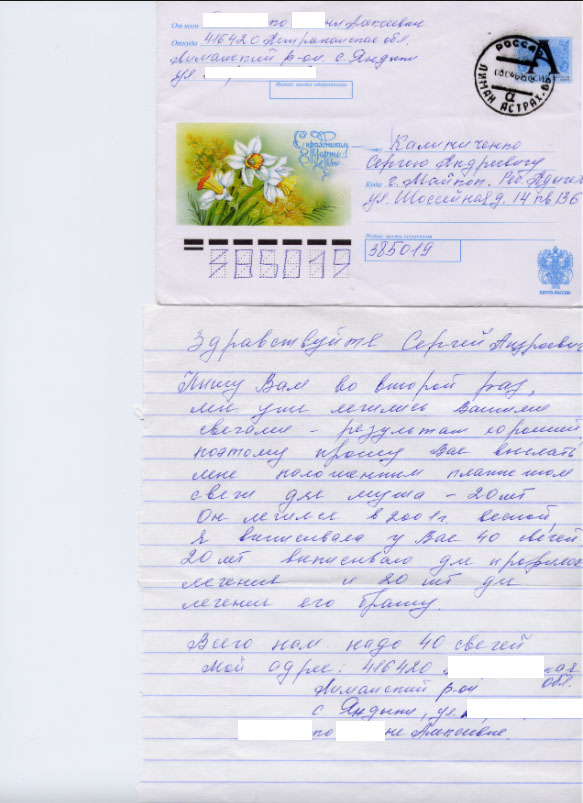 От кого по Алексеевич
Откуда 416420 Астраханская обл.
Лиманский р-он. с. Яндыки
ул.
Индекс места отправления
РОССИЯ
ЛИМАН АСТРАХ.
А
С праздником 8 Марта!
Кому Калиниченко
Сергею Андреевичу
Куда г. Майкоп. Рес Адыгея
ул. Шоссейная д. 14 кв 136
Индекс места назначения
385019
385019
ПОЧТА РОССИИ
Здравствуйте Сергей Андреевич
Пишу Вам во второй раз,
мы уже лечились Вашими
свечами - результат хороший
поэтому прошу Вас выслать
мне наложенным платежом
свечи для мужа - 20 шт
Он лечился в 2001г весной,
я выписывала у Вас 40 свечей
20 шт выписываю для профилак
лечения и 20 шт для
лечения его брату.
Всего нам надо 40 свечей
Мой адрес: 416420 кая
обл.
Лиманский р-он
с Яндыки, ул.
по не Алексеевне.